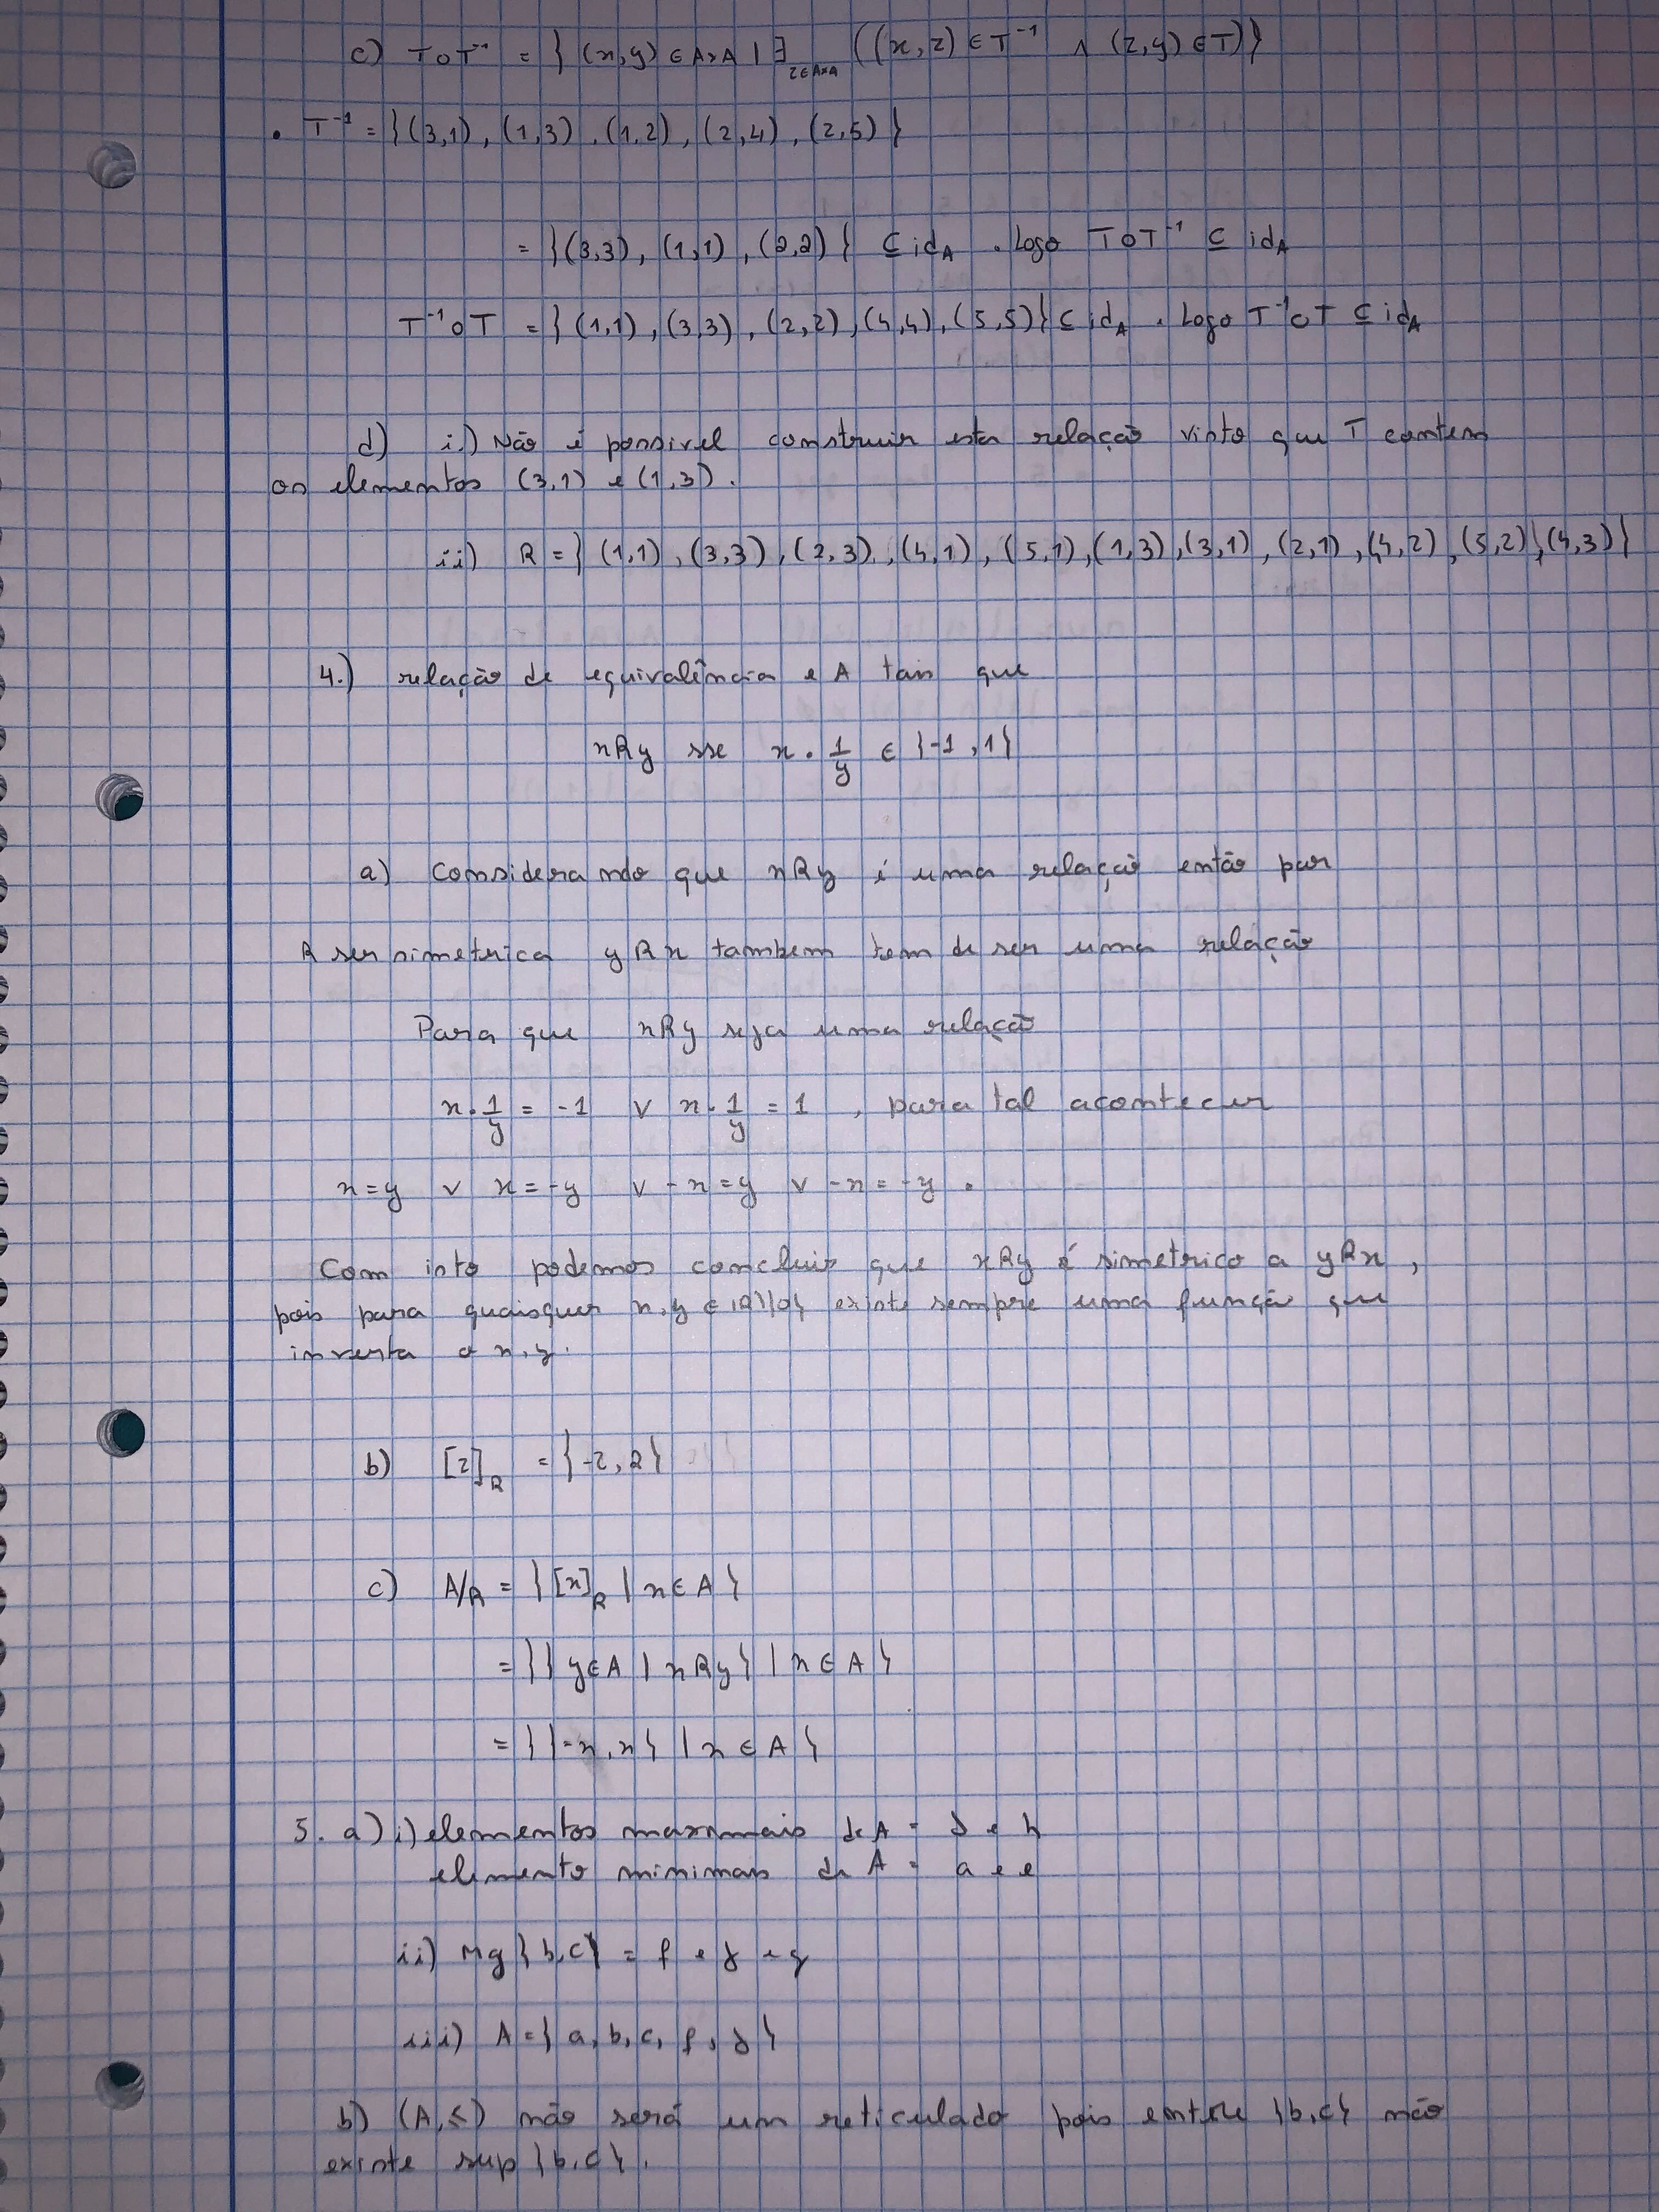 c) T∘T⁻¹ = {(x,y) ∈ A×A | ∃ z∈A×A ((x,z) ∈ T⁻¹ ∧ (z,y) ∈ T)}
• T⁻¹ = {(3,1), (1,3), (1,2), (2,4), (2,5)}
= {(3,3), (1,1), (2,2)} ⊆ id_A . Logo T∘T⁻¹ ⊆ id_A
T⁻¹∘T = {(1,1), (3,3), (2,2), (4,4), (5,5)} ⊆ id_A . Logo T⁻¹∘T ⊆ id_A
d) i.) Não é possivel construir esta relação visto que T contem
os elementos (3,1) e (1,3).
ii) R = {(1,1), (3,3), (2,3), (4,1), (5,1), (1,3), (3,1), (2,1), (4,2), (5,2), (4,3)}
4.) relação de equivalência e A tais que
xRy sse x . 1/y ∈ {-1, 1}
a) Considerando que xRy é uma relação então por
R ser simetrica yRx tambem tem de ser uma relação
Para que xRy seja uma relação
x . 1/y = -1 ∨ x . 1/y = 1 , para tal acontecer
x = y ∨ x = -y ∨ -x = y ∨ -x = -y .
Com isto podemos concluir que xRy é simetrico a yRx ,
pois para quaisquer x,y ∈ ℝ\{0} existe sempre uma função que
inverta o x,y.
b) [2]_R = {-2, 2}
c) A/R = {[x]_R | x ∈ A}
= {{y ∈ A | xRy} | x ∈ A}
= {{-x, x} | x ∈ A}
5. a) i) elementos maximais de A = d e h
elemento minimais de A = a e e
ii) Mg {b,c} = f e d e g
iii) A = {a, b, c, f, d}
b) (A,≤) não será um reticulado pois entre {b,c} não
existe sup {b,c}.